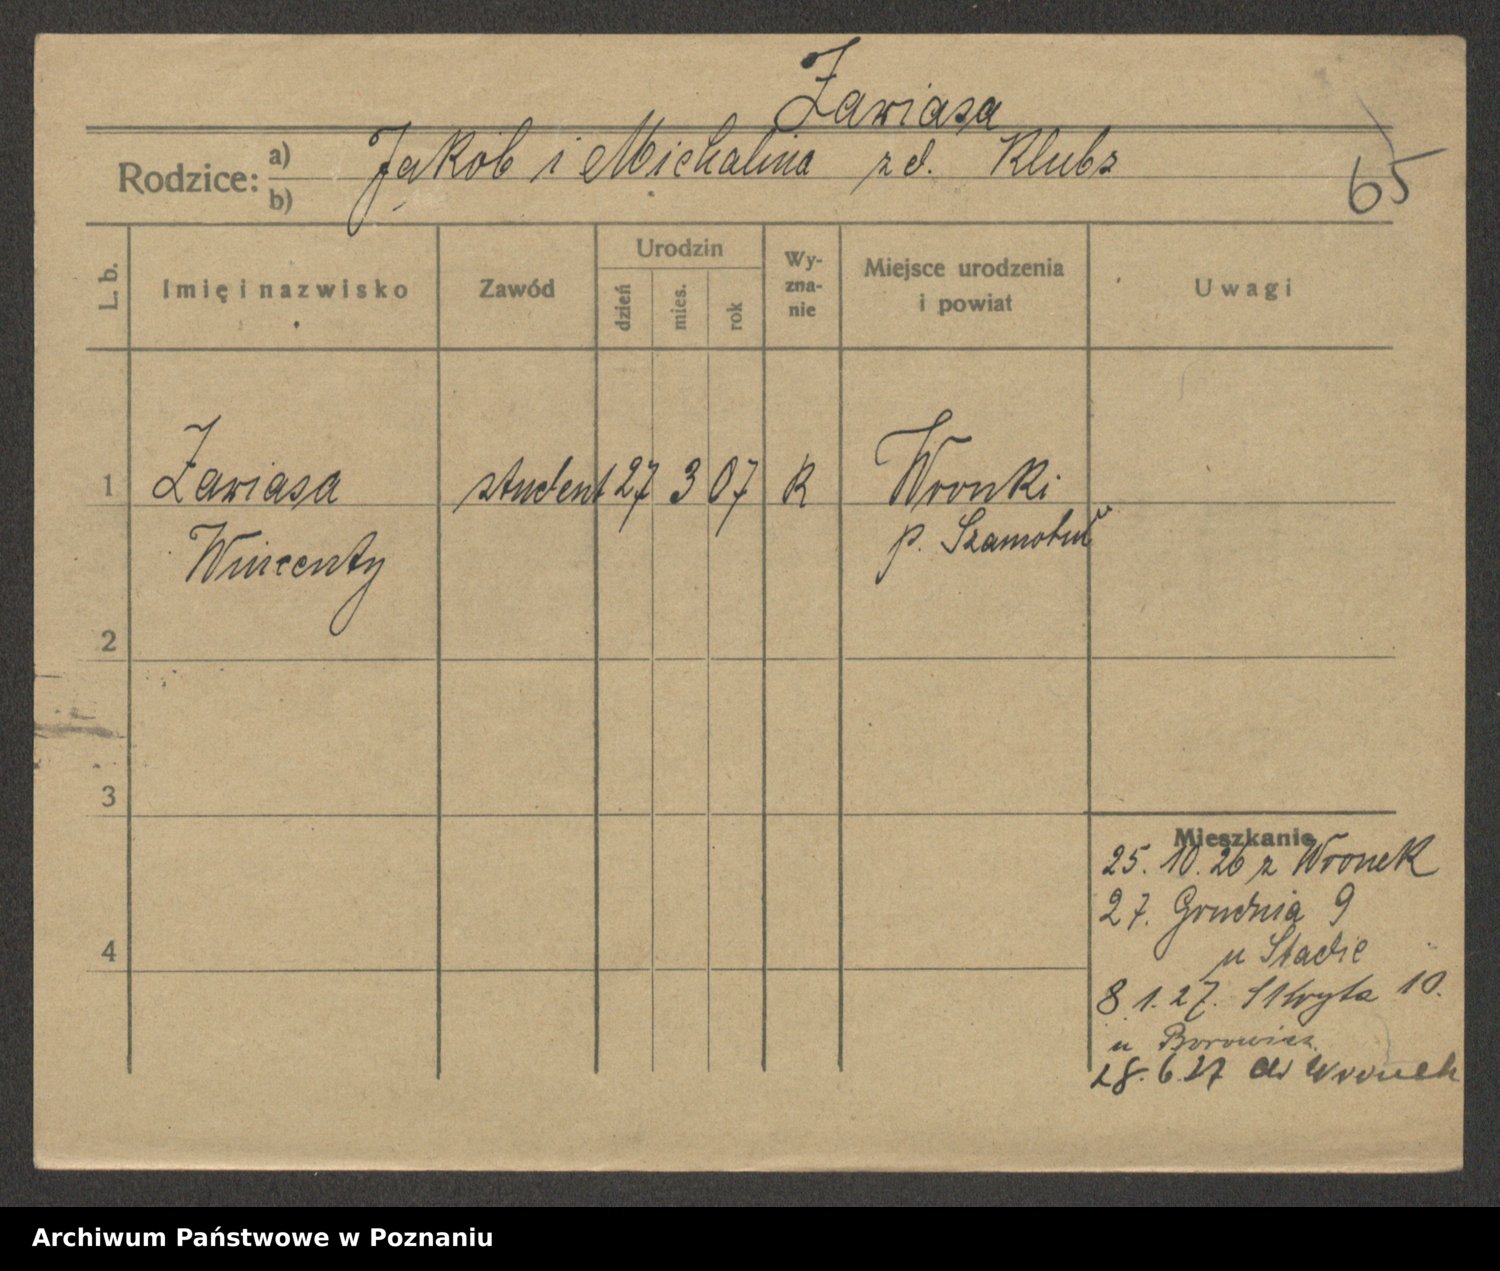 Zawiasa
Rodzice: a) Jakób i Michalina z d. Klubs
b)
65
L. b.
Imię i nazwisko
Zawód
Urodzin
dzień
mies.
rok
Wy-
zna-
nie
Miejsce urodzenia
i powiat
Uwagi
1 Zawiasa student 27 3 07 k Wronki
Wincenty p. Szamotuł
2
3
4
Mieszkanie
25. 10. 26 z Wronek
27. Grudnia 9
u Stadie
8. 1. 27. 10.
u
28. 6. 27 do Wronek
Archiwum Państwowe w Poznaniu